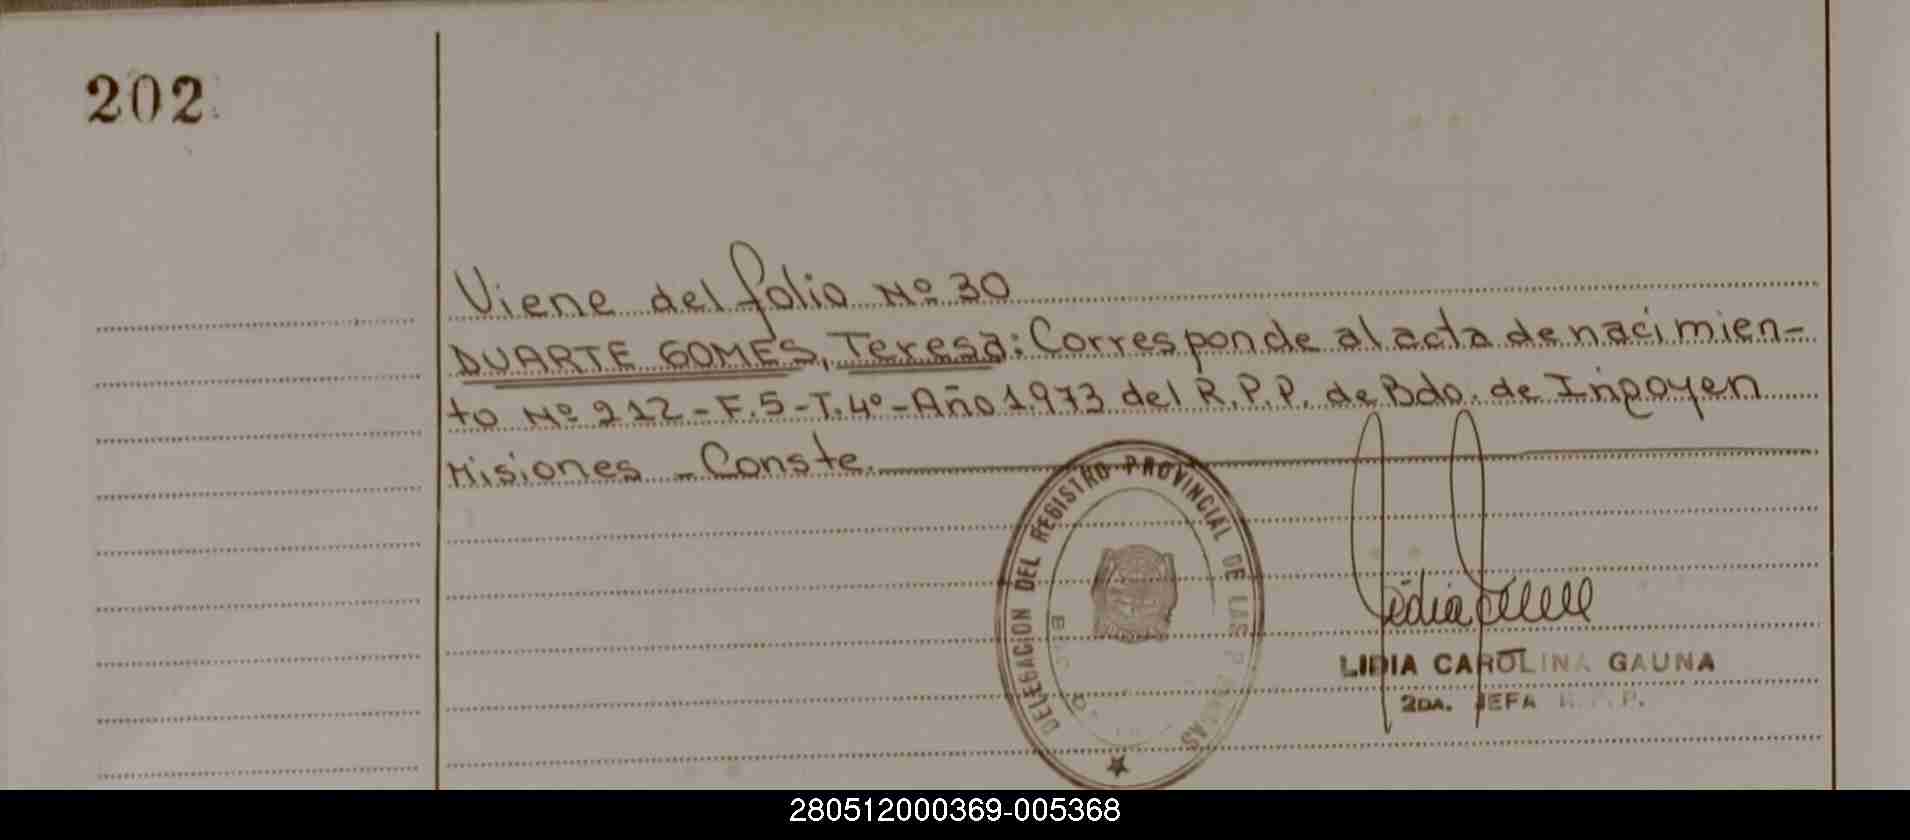 202
Viene del folio Nº 30
DUARTE GOMES, Teresa: Corresponde al acta de nacimien-
to Nº 212 - F. 5 - T. 4º - Año 1973 del R.P.P. de Bdo. de Irigoyen
Misiones - Conste.
DELEGACION DEL REGISTRO PROVINCIAL DE LAS PERSONAS
LIDIA CAROLINA GAUNA
2DA. JEFA R.P.P.
280512000369-005368